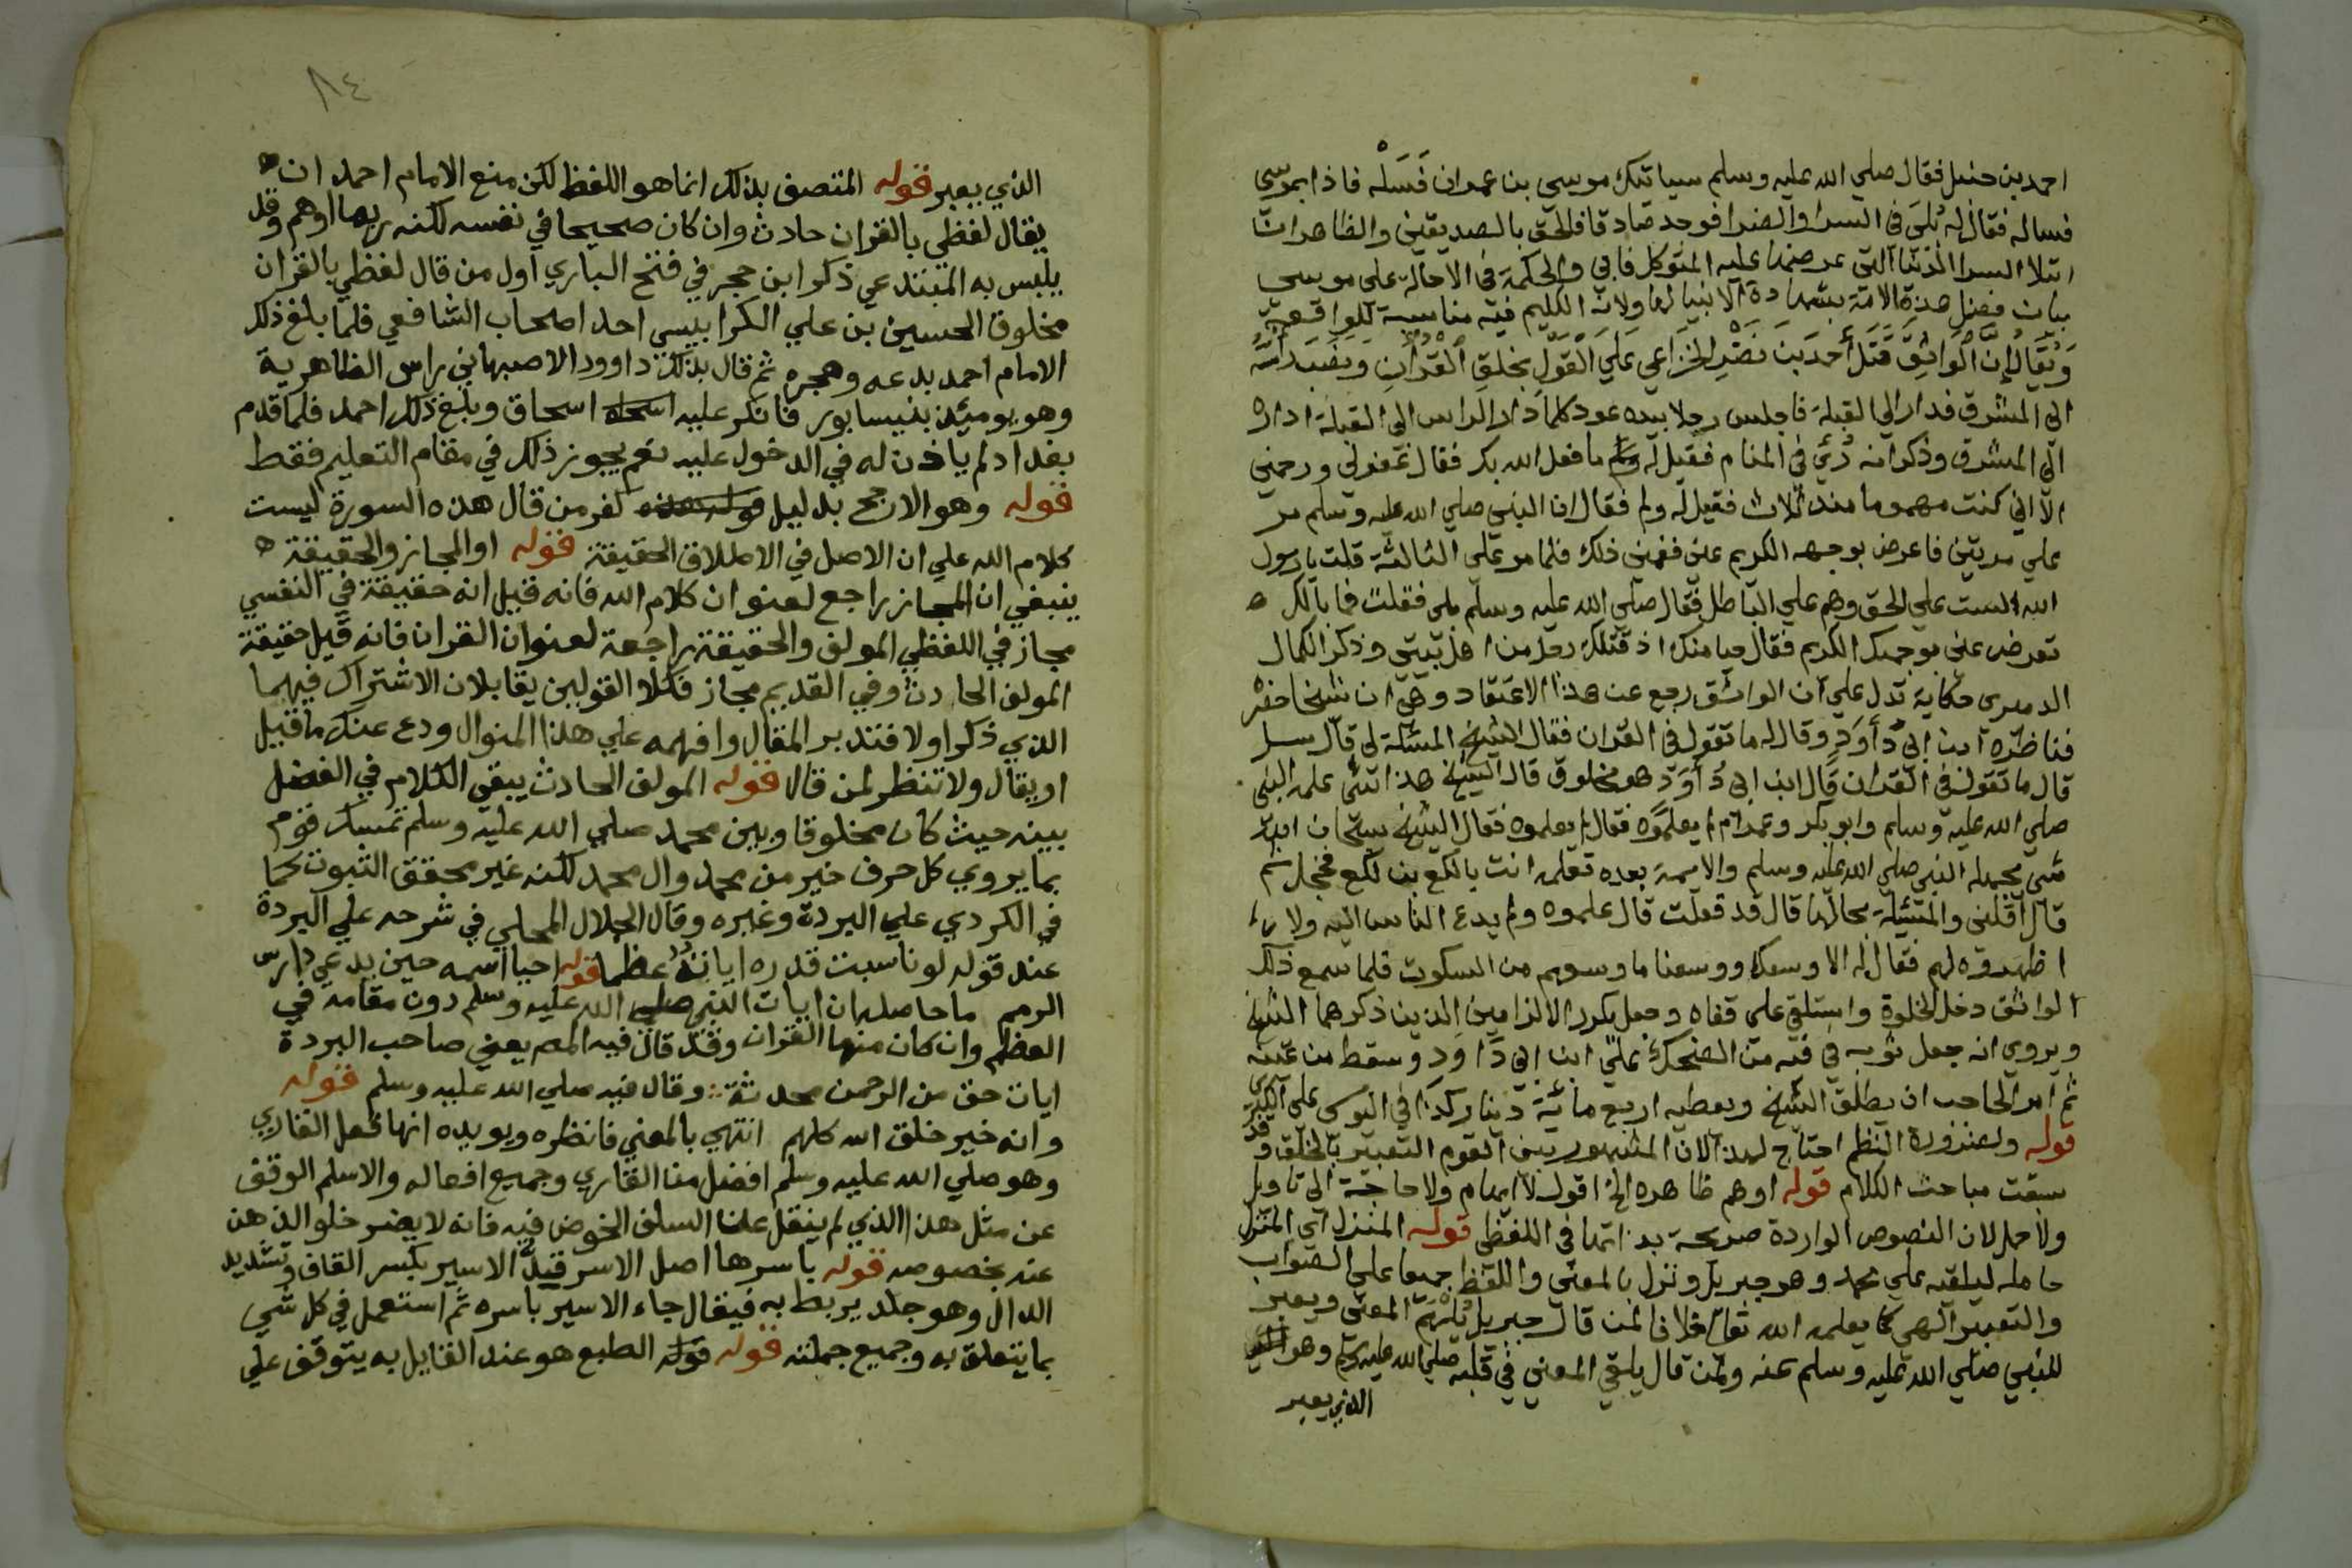 احمد بن حنبل فقال صلي الله عليه وسلم سياتيك موسي بن عمران فَسَلْه فاذا بموسى
فساله فقال له بُلَى في السرا والضرا فوجد صادقا فالحق بالصديقين والظاهر ان
ابتلا السرا الدنيا التي عرضها عليه المتوكل فابي والحكمة في الاحالة على موسى
بيان فضل هذه الامة بشهادة الانبيا لها ولان الكليم فيه مناسبة للواقعة
وَيُقَالُ إنَّ الْوَاثِقَ قَتَلَ أحمدَ بنَ نَصْرٍ الخزاعي عَلَى الْقَوْلِ بخلقِ الْقُرْآنِ وَنصَبَ رأسَهُ
الى المشرق فدار الى القبلة فاجلس رجلا بيده عود كلما دار الراس الى القبلة اداره
الى المشرق وذكر انه رُئِيَ في المنام فقيل له ما فعل الله بك فقال غفر لي ورحمني
الا اني كنت مهموما منذ ثلاث فقيل له ولم فقال ان النبي صلي الله عليه وسلم مر
علي مرتين فاعرض بوجهه الكريم عني فغمني ذلك فلما مر على الثالثة قلت يا رسول
الله الست علي الحق وهم علي الباطل فقال صلي الله عليه وسلم بلى فقلت فما بالك
تعرض عني بوجهك الكريم فقال حيا منك اذ قتلك رجل من اهل بيتي وذكر الكمال
الدميرى حكاية تدل علي ان الواثق رجع عن هذا الاعتقاد وهي ان شيخا حضر
فناظره ابن ابي دُأوَد وقال له ما تقول في القران فقال الشيخ المسئلة لي قال سل
قال ما تقول في القران قال ابن ابي دُأوَد هو مخلوق قال الشيخ هذا شئ علمه النبي
صلي الله عليه وسلم وابو بكر وعمر ام لم يعلموه فقال لم يعلموه فقال الشيخ سبحان الله
شي يجهله النبي صلي الله عليه وسلم والايمة بعده تعلمه انت يا لكع بن لكع فخجل ثم
قال اقلني والمسئلة بحالها قال قد فعلت قال علموه ولم يدع الناس اليه ولا
اظهروه لهم فقال له الا وسعك ووسعنا ما وسعهم من السكوت فلما سمع ذلك
الواثق دخل الخلوة واستلقى على قفاه وجعل يكرر الالزامين الذين ذكرهما الشيخ
ويروي انه جعل ثوبه في فيه من الضحك علي ابن ابي دَاوَد وسقط من عينه
ثم امر الحاجب ان يطلق الشيخ ويعطيه اربع مائة دينار كذا في اليوسي على الكبرى
قوله ولضرورة النظم احتاج لهذا لان المشهور بين القوم التعبير بالخلق وقد
سبقت مباحث الكلام قوله اوهم ظاهره الخ اقول لا ايهام ولا حاجة الى تاويل
ولا حمل لان النصوص الواردة صريحة بذاتها في اللفظي قوله المنزل اي المنزل
حامله ليلقيه علي محمد وهو جبريل ونزل بالمعنى واللفظ جميعا علي الصواب
والتعبير الهي كما يعلمه الله تعالى خلافا لمن قال جبريل يُلْهَم المعنى ويعبر
للنبي صلي الله عليه وسلم عنه ولمن قال يلقي المعنى في قلبه صلي الله عليه وسلم وهو
الذي يعبر
٨٤
الذي يعبر قوله المتصف بذلك انما هو اللفظ لكن منع الامام احمد ان
يقال لفظي بالقران حادث وان كان صحيحا في نفسه لكنه ربما اوهم وقد
يلبس به المبتدعي ذكر ابن حجر في فتح الباري اول من قال لفظي بالقران
مخلوق الحسين بن علي الكرابيسي احد اصحاب الشافعي فلما بلغ ذلك
الامام احمد بدعه وهجره ثم قال بذلك داوود الاصبهاني راس الظاهرية
وهو يوميئذ بنيسابور فانكر عليه اسحاق وبلغ ذلك احمد فلما قدم
بغداد لم ياذن له في الدخول عليه نعم يجوز ذلك في مقام التعليم فقط
قوله وهو الارجح بدليل كفر من قال هذه السورة ليست
كلام الله علي ان الاصل في الاطلاق الحقيقة قوله او المجاز والحقيقة
ينبغي ان المجاز راجع لعنوان كلام الله فانه قيل انه حقيقة في النفسي
مجاز في اللفظي المولف والحقيقة راجعة لعنوان القران فانه قيل حقيقة
المولف الحادث وفي القديم مجاز فكلا القولين يقابلان الاشتراك فيهما
الذي ذكر اولا فتدبر المقال وافهمه علي هذا المنوال ودع عنك ما قيل
او يقال ولا تنظر لمن قال قوله المولف الحادث يبقي الكلام في الفضل
بينه حيث كان مخلوقا وبين محمد صلي الله عليه وسلم تمسك قوم
بما يروي كل حرف خير من محمد وال محمد لكنه غير محقق الثبوت كما
في الكردي علي البردة وغيره وقال الجلال المحلي في شرحه علي البردة
عند قوله لو ناسبت قدره اياتُهُ عظما قوله احيا اسمه حين يدعي دارس
الرمم ما حاصله ان ايات النبي صلي الله عليه وسلم دون مقامه في
العظم وان كان منها القران وقد قال فيه المص يعني صاحب البردة
ايات حق من الرحمن محدثة وقال فيه صلي الله عليه وسلم قوله
وانه خير خلق الله كلهم انتهي بالمعني فانظره ويويده انها فعل القاري
وهو صلي الله عليه وسلم افضل من القاري وجميع افعاله والاسلم الوقف
عن مثل هذا الذي لم ينقل عن السلف الخوض فيه فانه لا يضر خلو الذهن
عنه بخصوصه قوله باسرها اصل الاسر قيد الاسير بكسر القاف وتشديد
الدال وهو جلد يربط به فيقال جاء الاسير باسره ثم استعمل في كل شي
بما يتعلق به وجميع جملته قوله قوله الطبع هو عند القايل به يتوقف علي